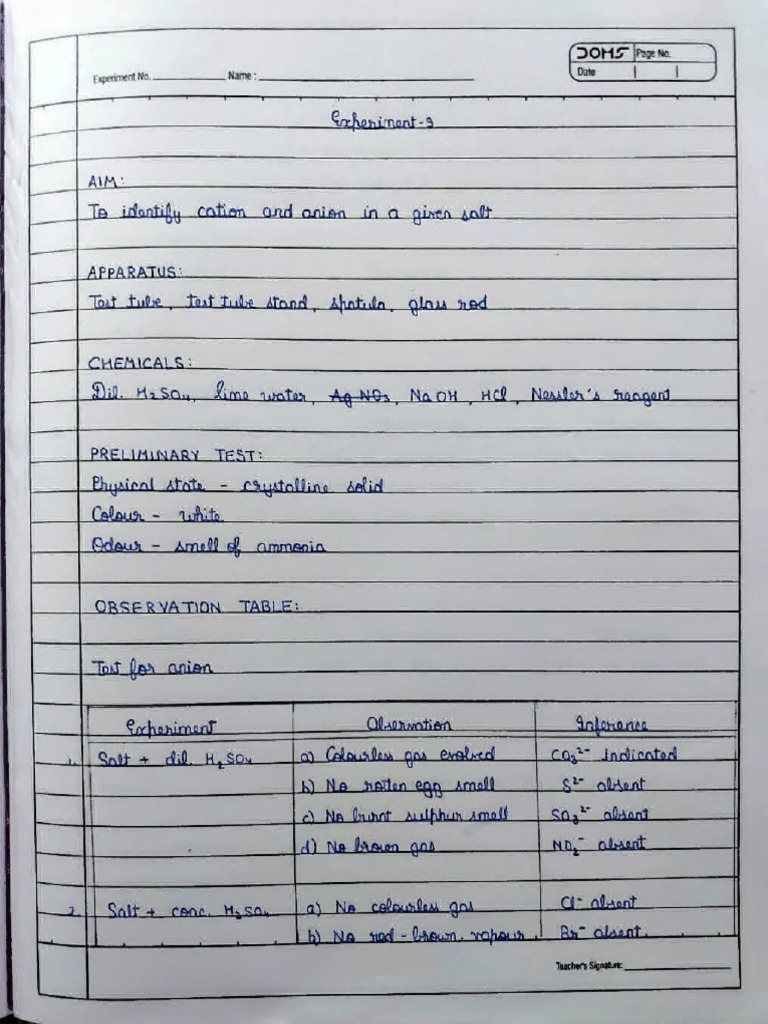 DOMS Page No.
Experiment No. Name : Date
Experiment-9
AIM:
To identify cation and anion in a given salt
APPARATUS:
Test tube, test tube stand, spatula, glass rod
CHEMICALS:
Dil. H2SO4, lime water, AgNO3, NaOH, HCl, Nessler's reagent
PRELIMINARY TEST:
Physical state - crystalline solid
Colour - white
Odour - smell of ammonia
OBSERVATION TABLE:
Test for anion
Experiment Observation Inference
1. Salt + dil. H2SO4 a) Colourless gas evolved CO3²⁻ indicated
b) No rotten egg smell S²⁻ absent
c) No burnt sulphur smell SO3²⁻ absent
d) No brown gas NO2⁻ absent
2. Salt + conc. H2SO4 a) No colourless gas Cl⁻ absent
b) No red-brown vapour Br⁻ absent
Teacher's Signature: